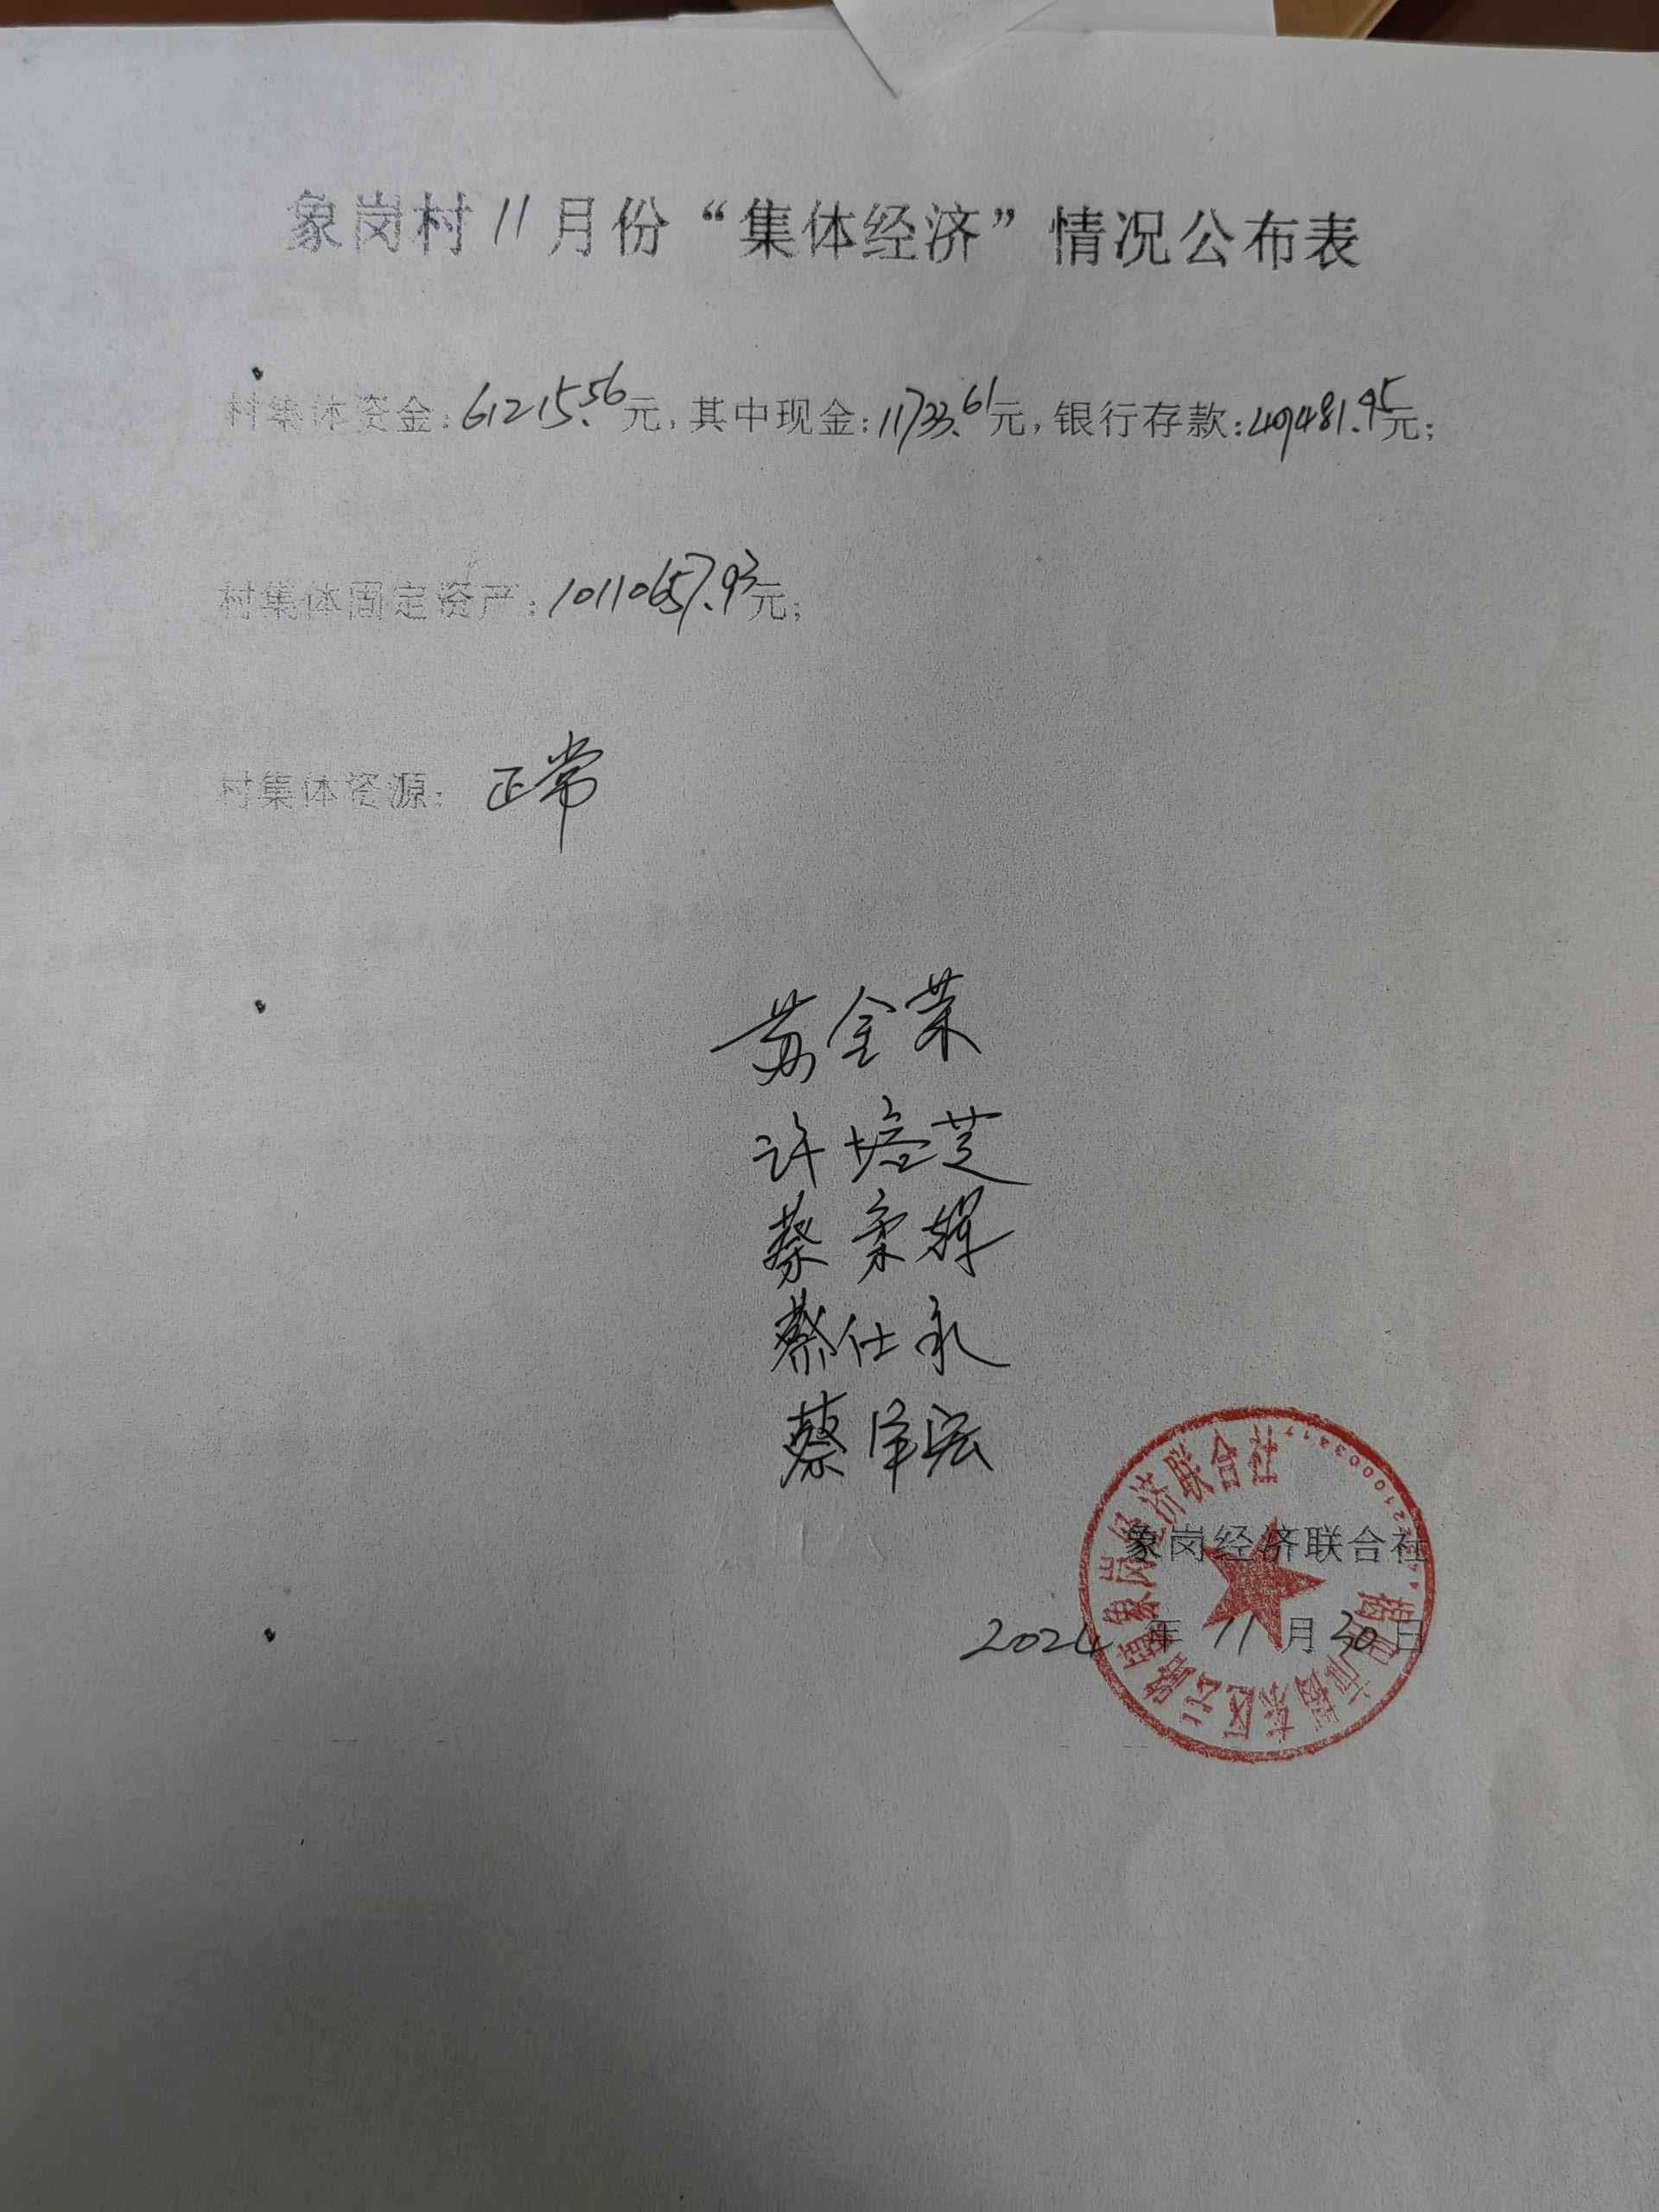 象岗村11月份“集体经济”情况公布表
村集体资金:61215.56元,其中现金:11733.61元,银行存款:49481.95元;
村集体固定资产:10110657.93元;
村集体资源: 正常
苏金荣
许培芝
蔡柔辉
蔡仕永
蔡泽宏
象岗经济联合社
2024年11月30日
揭阳市揭东区云路镇象岗经济联合社